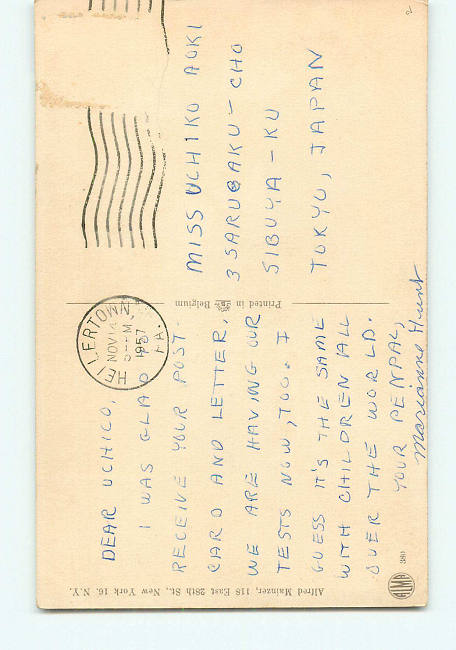 DEAR UCHICO,
I WAS GLAD TO
RECEIVE YOUR POST-
CARD AND LETTER.
WE ARE HAVING OUR
TESTS NOW, TOO. I
GUESS IT'S THE SAME
WITH CHILDREN ALL
OVER THE WORLD.
YOUR PENPAL,
Marianne Hunt
HELLERTOWN,
NOV 14
5-PM
1957
PA.
MISS UCHIKO AOKI
3 SARUGAKU-CHO
SIBUYA-KU
TOKYO, JAPAN
Printed in Belgium
Alfred Mainzer, 118 East 28th St., New York 16, N.Y.
ALMA
380